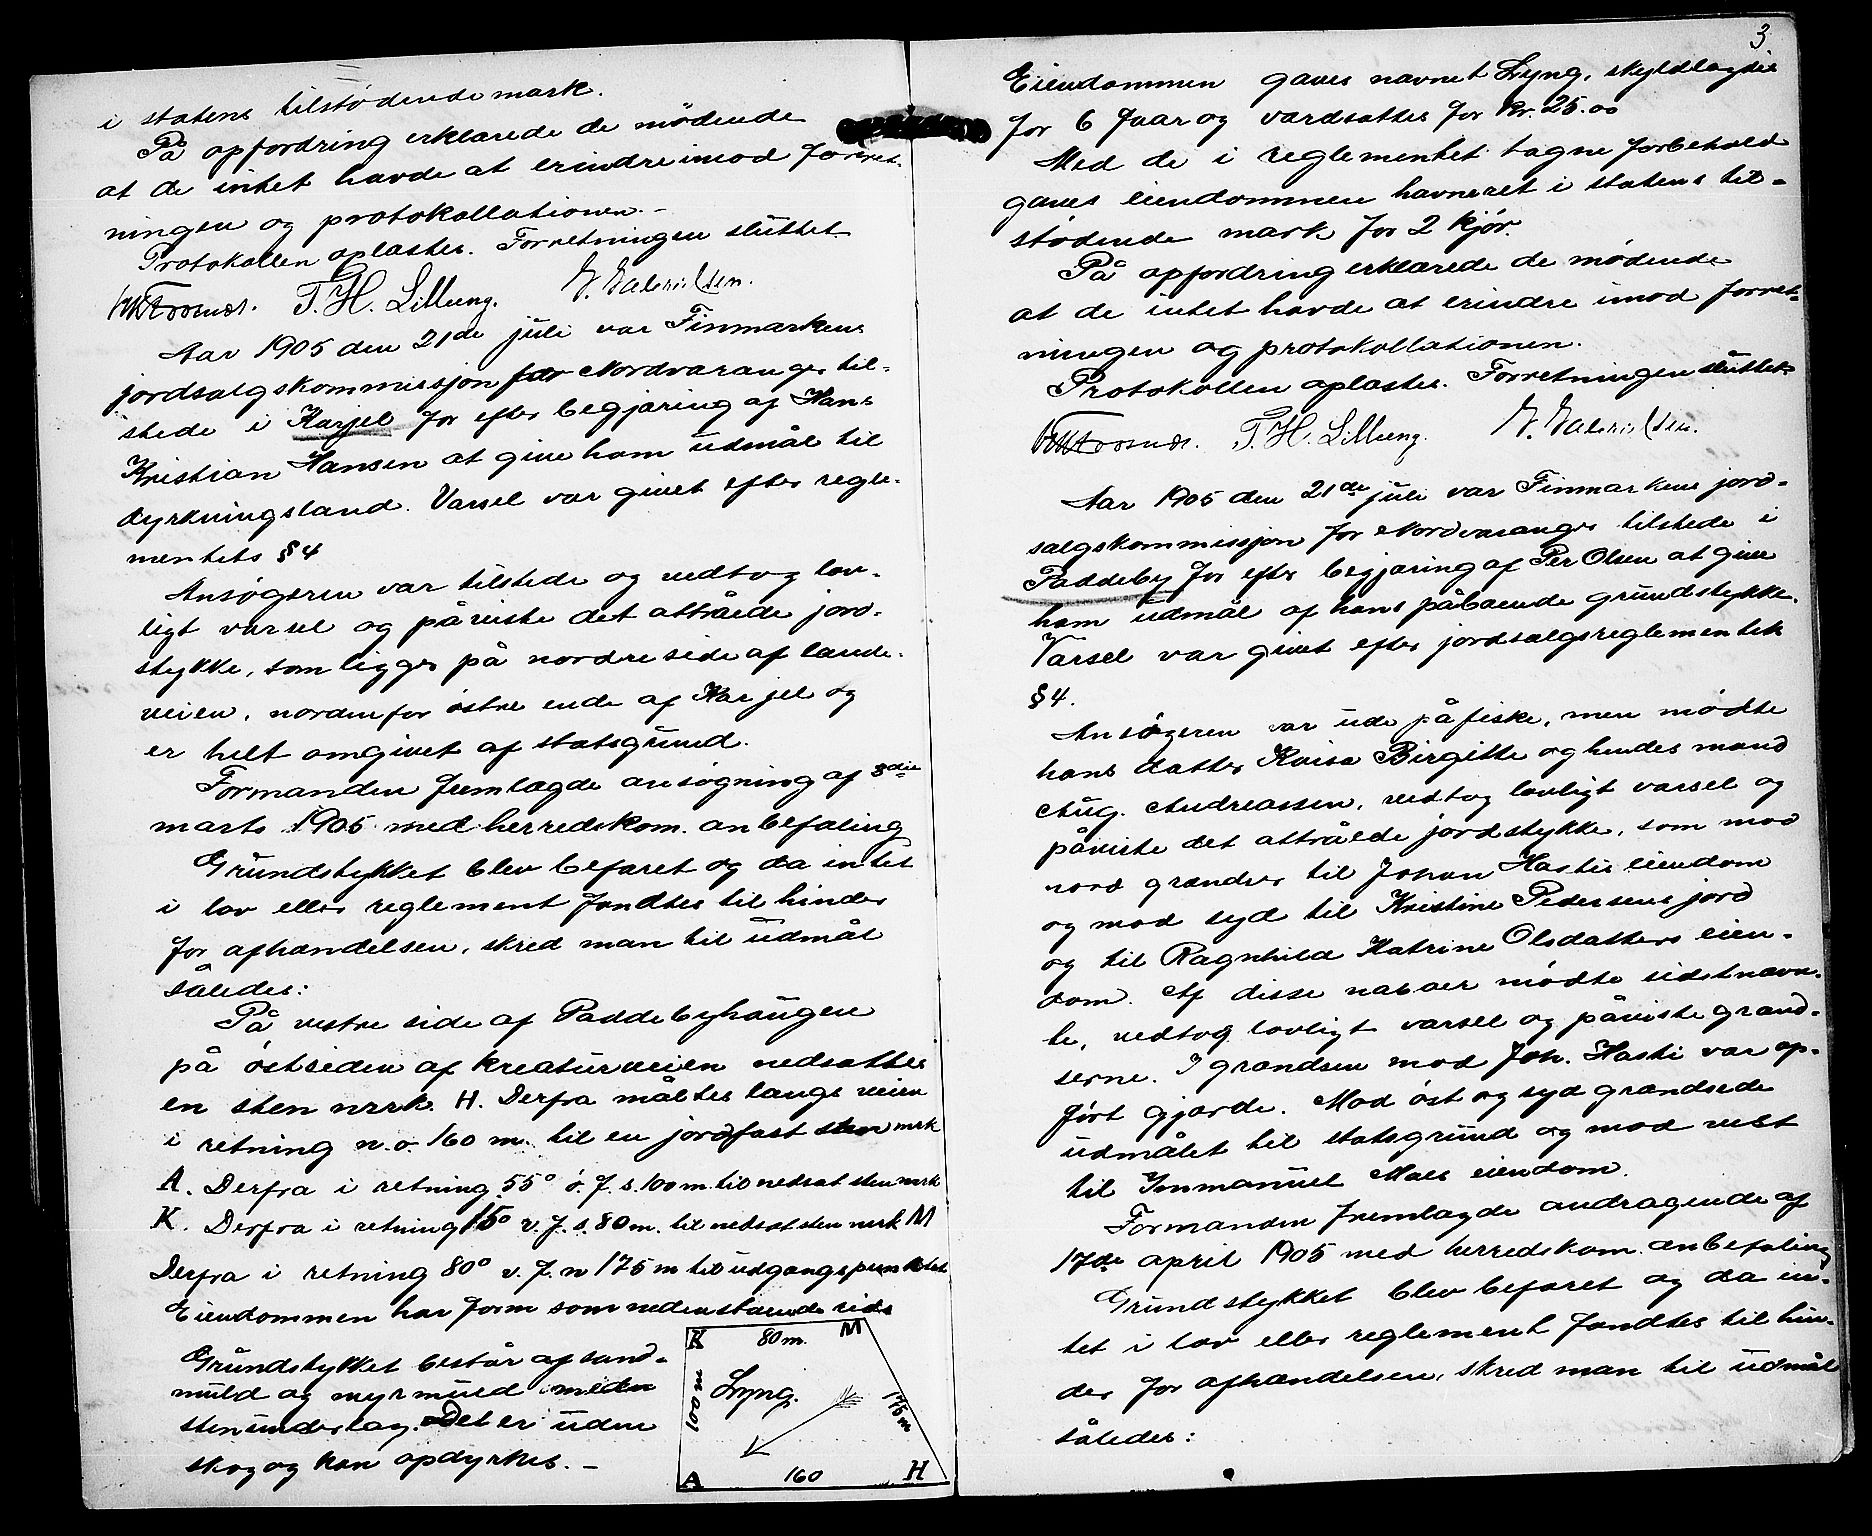 i statens tilstødende mark.
På opfordring erklærede de mødende
at de intet havde at erindre imod forret-
ningen og protokollationen.-
Protokollen oplæstes. Forretningen sluttet.
T. H. Lillung. G. Gabrielsen.
Aar 1905 den 21de juli var Finmarkens
jordsalgskommissjon for Nordvaranger til-
stede i Karjel for efter begjæring af Hans
Kristian Hansen at give ham udmål til
dyrkningsland. Varsel var givet efter regle-
mentets § 4
Ansøgeren var tilstede og vedtog lov-
ligt varsel og påviste det attråede jord-
stykke, som ligger på nordre side af lande-
veien, nordenfor østre ende af Karjel og
er helt omgivet af statsgrund.
Formanden fremlagde ansøgning af 8die
marts 1905 med herredskom. anbefaling
Grundstykket blev befaret og da intet
i lov eller reglement fandtes til hinder
for afhændelsen, skred man til udmål
således:
På vestre side af Paddebyhaugen
på østsiden af kreaturveien nedsattes
en sten mrk. H. Derfra måltes langs veien
i retning n. o. 160 m. til en jordfast sten mrk
A. Derfra i retning 55° ø. f. s. 100 m. til nedsat sten mrk
K. Derfra i retning 15° v. f. s. 80 m. til nedsat sten mrk M
Derfra i retning 80° v. f. n 175 m til udgangspunktet
Eiendommen har form som nedenstående rids
Grundstykket består af sand-
muld og myrmuld med
stenunderlag. Det er uden
skog og kan opdyrkes. -
K 80 m. M
100 m Lyng. 175 m
A 160 H
3
Eiendommen gaves navnet Lyng, skyldlagdes
for 6 Juar og værdsattes for Kr. 25.00
Med de i reglementet tagne forbehold
gaves eiendommen havneret i statens til-
stødende mark for 2 kjør.
På opfordring erklærede de mødende
at de intet havde at erindre imod forret-
ningen og protokollationen.
Protokollen oplæstes. Forretningen sluttet.
T. H. Lillung. G. Gabrielsen.
Aar 1905 den 21de juli var Finmarkens jord-
salgskommissjon for Nordvaranger tilstede i
Paddeby for efter begjæring af Per Olsen at give
ham udmål af hans påboende grundstykke.
Varsel var givet efter jordsalgsreglementets
§ 4.
Ansøgeren var ude på fiske, men mødte
hans datter Kvisa Birgitte og hendes mand
Aug. Andreassen, vedtog lovligt varsel og
påviste det attråede jordstykke, som mod
nord grændser til Johan Hastis eiendom
og mod syd til Kristine Pedersens jord
og til Ragnhild Katrine Olsdatters eien-
dom. Af disse naboer mødte sidstnævn-
te, vedtog lovligt varsel og påviste grænd-
serne. I grændsen mod Joh. Hasti var op-
ført gjærde. Mod øst og syd grændsede
udmålet til statsgrund og mod vest
til Immanuel Maes eiendom.
Formanden fremlagde andragende af
17de april 1905 med herredskom. anbefaling
Grundstykket blev befaret og da in-
tet i lov eller reglement fandtes til hin-
der for afhændelsen, skred man til udmål
således: